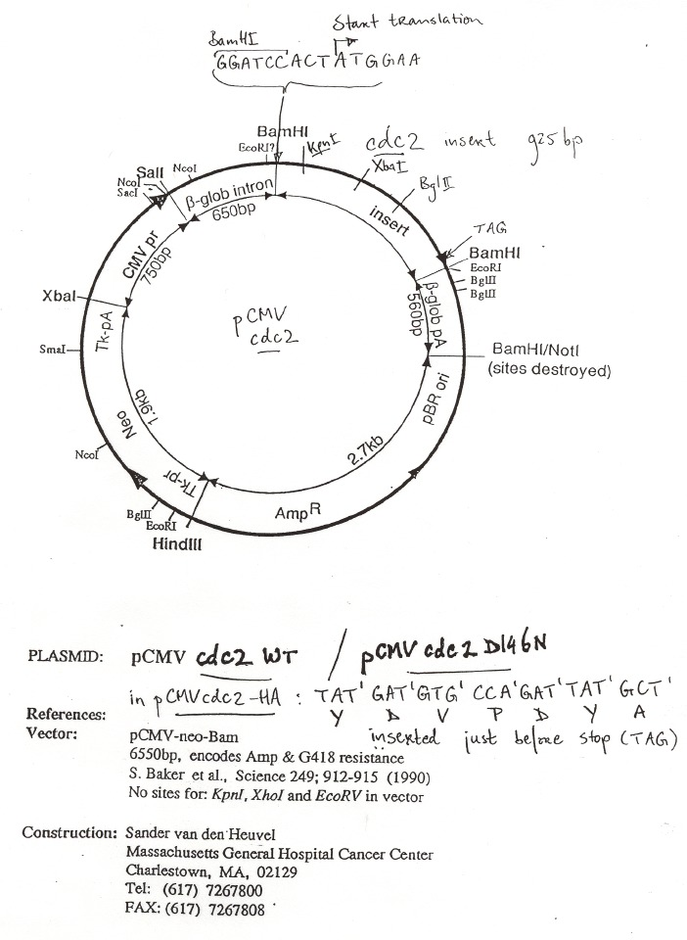 Start translation
BamHI
GGATCCACTATGGAA
BamHI
EcoRI?
KpnI
cdc2 insert 925 bp
XbaI
BglII
NcoI
SalI
NcoI
SacI
β-glob intron
650bp
insert
TAG
BamHI
EcoRI
BglII
BglII
CMV pr
750bp
β-glob pA
560bp
XbaI
Tk-pA
pCMV
cdc2
SmaI
BamHI/NotI
(sites destroyed)
pBR ori
Neo
1.9kb
2.7kb
NcoI
Tk-pr
AmpR
BglII
EcoRI
HindIII
PLASMID: pCMV cdc2 WT / pCMV cdc2 D146N
in pCMVcdc2-HA : TAT' GAT'GTG' CCA'GAT'TAT' GCT'
Y D V P D Y A
References:
inserted just before stop (TAG)
Vector: pCMV-neo-Bam
6550bp, encodes Amp & G418 resistance
S. Baker et al., Science 249; 912-915 (1990)
No sites for: KpnI, XhoI and EcoRV in vector
Construction: Sander van den Heuvel
Massachusetts General Hospital Cancer Center
Charlestown, MA, 02129
Tel: (617) 7267800
FAX: (617) 7267808